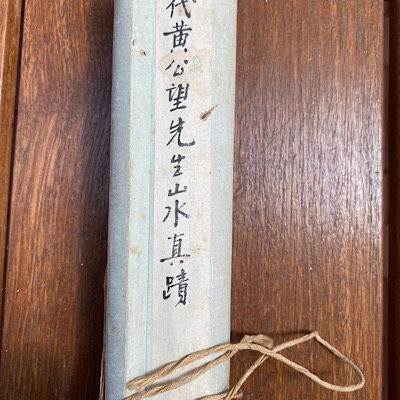 代黄公望先生山水真蹟